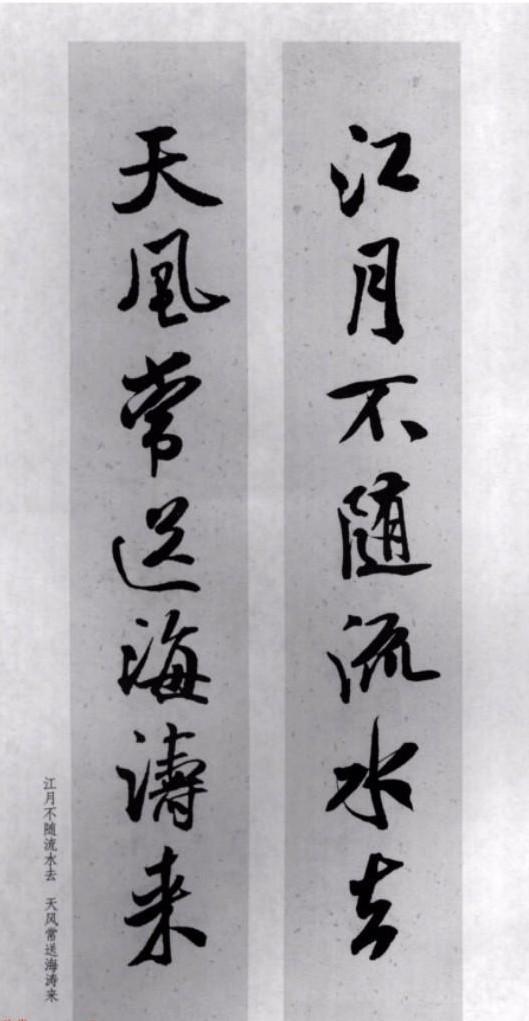 江月不随流水去
天风常送海濤来
江月不随流水去 天风常送海涛来